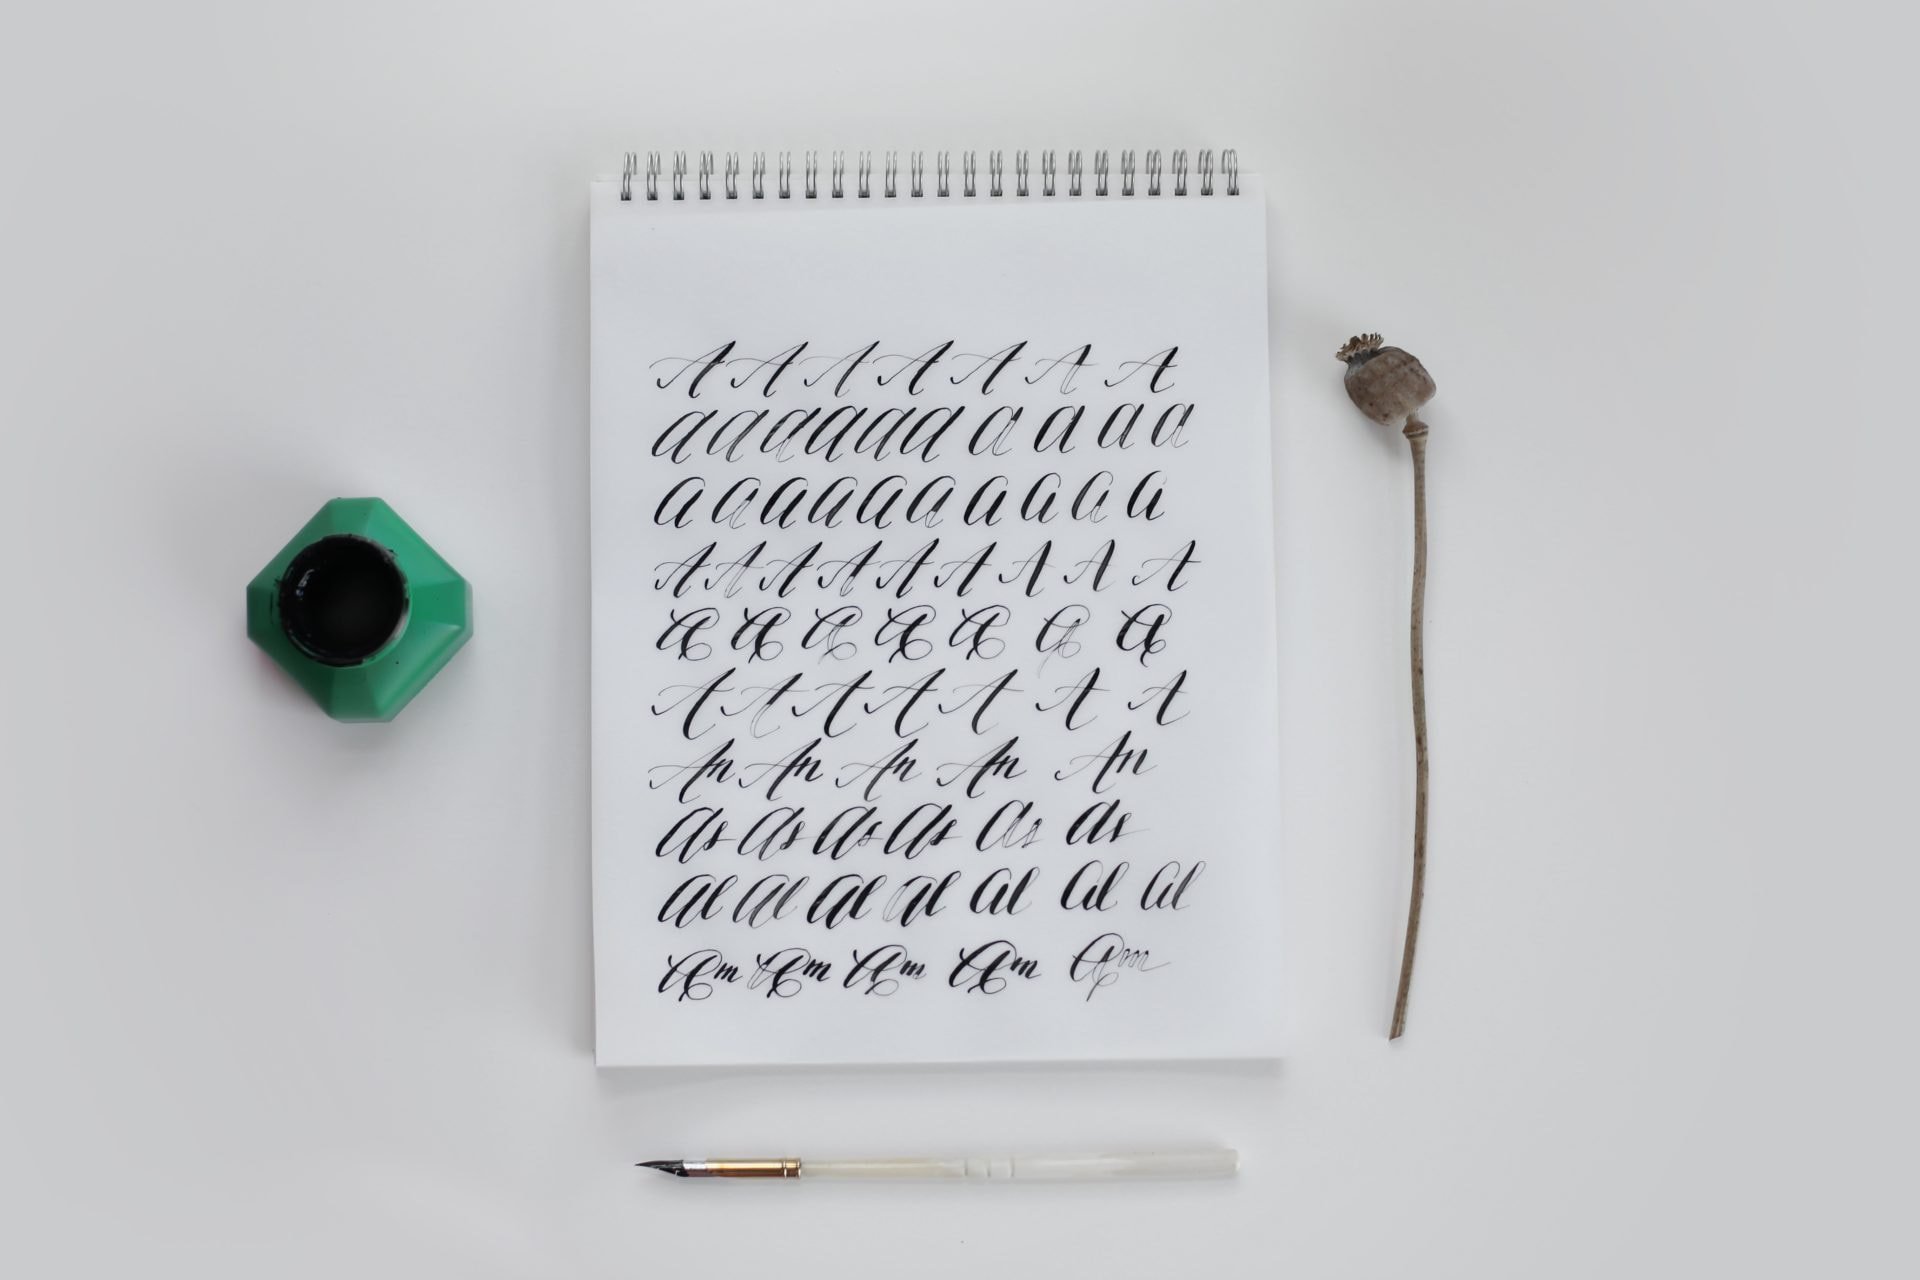 A A A A A A A
a a a a a a a a a a
a a a a a a a a a a
A A A A A A A A A
A A A A A A A
A A A A A A A
An An An An An
As As As As As As
Al Al Al Al Al Al Al
Am Am Am Am Am